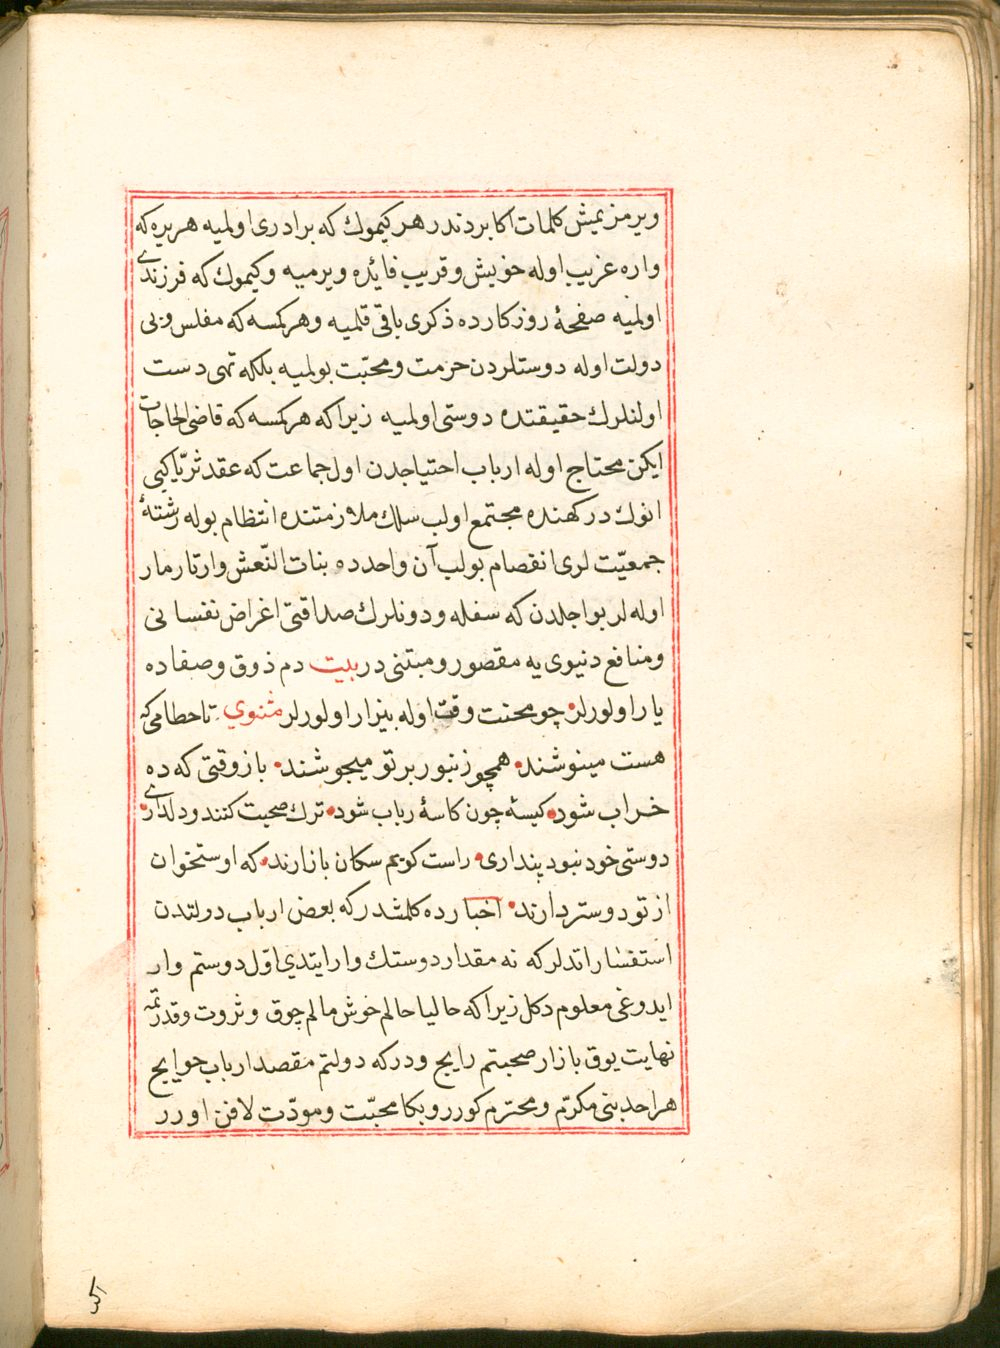 ويرمز يمش كلمات اكابردندر هر كيموك كه برادرى اولميه هريره كه
واره غريب اوله خويش و قريب فائده ويرميه و كيموك كه فرزندى
اولميه صفحۀ روزكارده ذكرى باقى قلميه و هر كمسه كه مفلس و بى
دولت اوله دوستلردن حرمت و محبّت بولميه بلكه تهى دست
اولنلرك حقيقتده دوستى اولميه زيرا كه هر كمسه كه قاضى الحاجات
ايكن محتاج اوله ارباب احتياجدن اول جماعت كه عقد ثريّا كيبى
انوك دركهنده مجتمع اولب سلك ملازمتنده انتظام بوله رشتۀ
جمعيّت لرى انفصام بولب آن واحدده بنات النّعش وار تارمار
اوله لر بو اجلدن كه سفله و دونلرك صداقتى اغراض نفسانى
و منافع دنيوى يه مقصور و مبتنى در بيت دم ذوق و صفاده
يار اولورلر چو محنت وقت اوله بيزار اولورلر مثنوي تا حطامى كه
هست مينوشند همچو زنبور بر تو ميجوشند باز وقتى كه ده
خراب شود كيسه چون كاسۀ رباب شود ترك صحبت كنند و دلدارى
دوستى خود نبود پندارى راست كويم سكان بازارند كه اوستخوان
از تو دوستر دارند اخبارده كلمشدر كه بعض ارباب دولتدن
استفسار اتدلر كه نه مقدار دوستك وار ايتدي اوّل دوستم وار
ايدوغى معلوم دكل زيرا كه حاليا حالم خوش مالم چوق و ثروت و قدرتمه
نهايت يوق بازار صحبتم رايج و دركه دولتم مقصد ارباب حوايج
هر احد بنى مكرّم و محترم كورر و بكا محبّت و مودّت لافن اورر